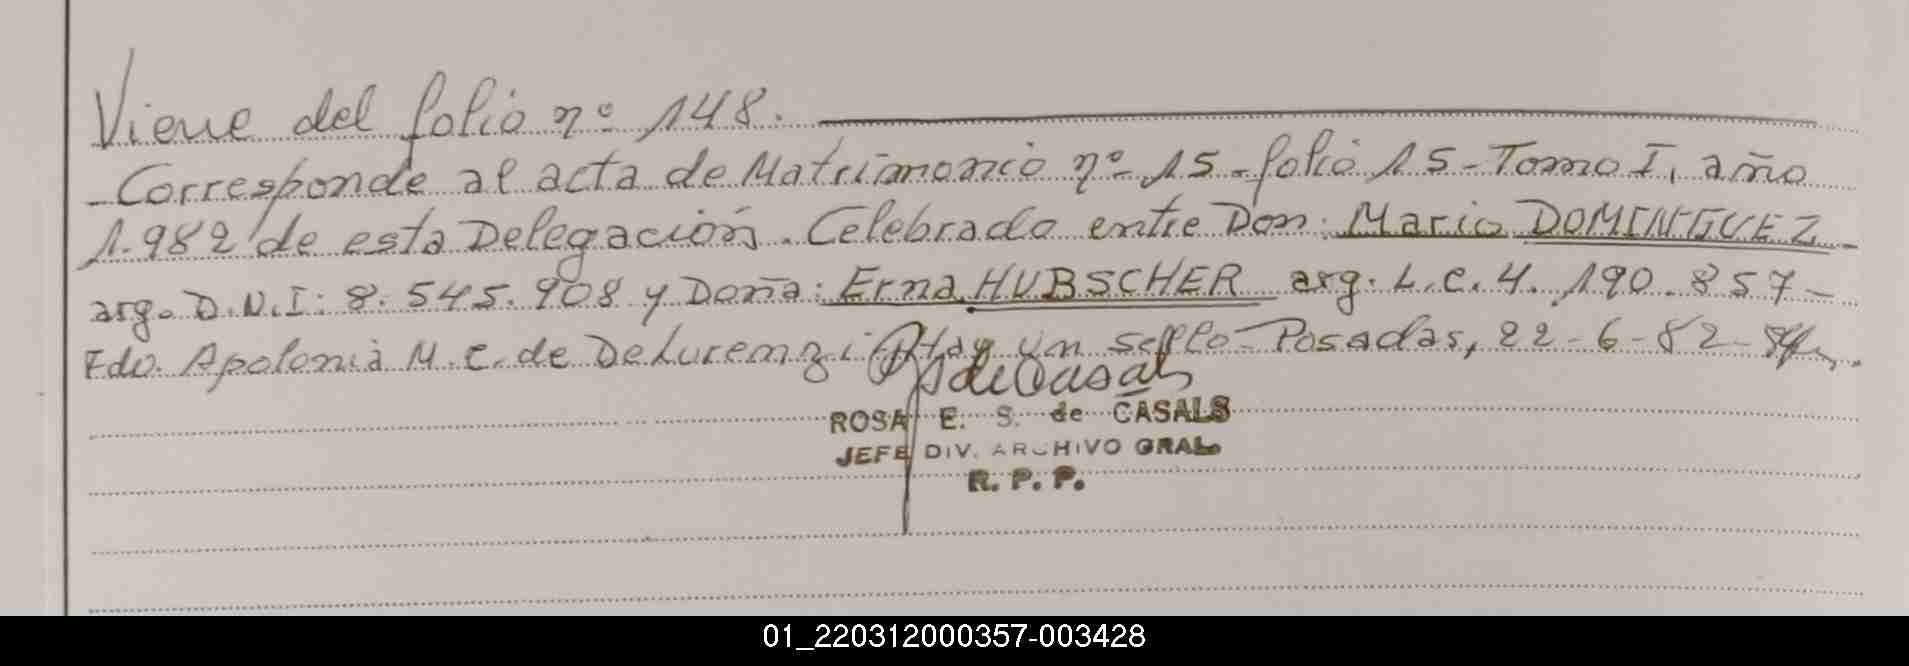 Viene del folio nº 148.
- Corresponde al acta de Matrimonio nº 15 - folio 15 - Tomo I, año
1.982 de esta Delegación. Celebrado entre Don: Mario DOMINGUEZ -
arg. D.N.I: 8.545.908 y Doña: Erna HUBSCHER arg. L.C. 4.190.857 -
Fdo. Apolonia M. C. de De Lurenzi Hay un sello - Posadas, 22-6-82 -
ROSA E. S. de CASALS
JEFE DIV. ARCHIVO GRAL.
R. P. P.
01_220312000357-003428